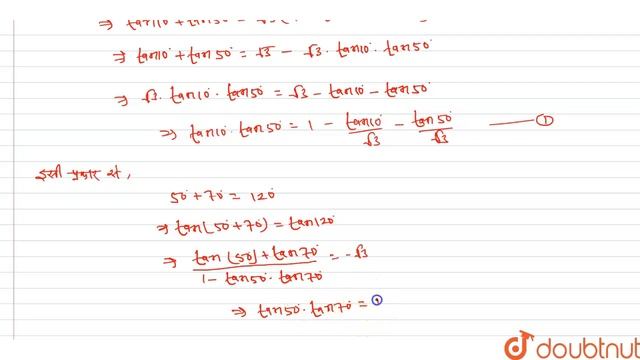 ⇒ tan10° + tan50° = √3
⇒ tan10° + tan50° = √3 - √3 · tan10° · tan50°
⇒ √3 · tan10° · tan50° = √3 - tan10° - tan50°
⇒ tan10° · tan50° = 1 - tan10°/√3 - tan50°/√3 —— ①
इसी प्रकार से,
50° + 70° = 120°
⇒ tan(50° + 70°) = tan120°
⇒ (tan(50°) + tan70°)/(1 - tan50° · tan70°) = -√3
⇒ tan50° · tan70° =
doubtnut